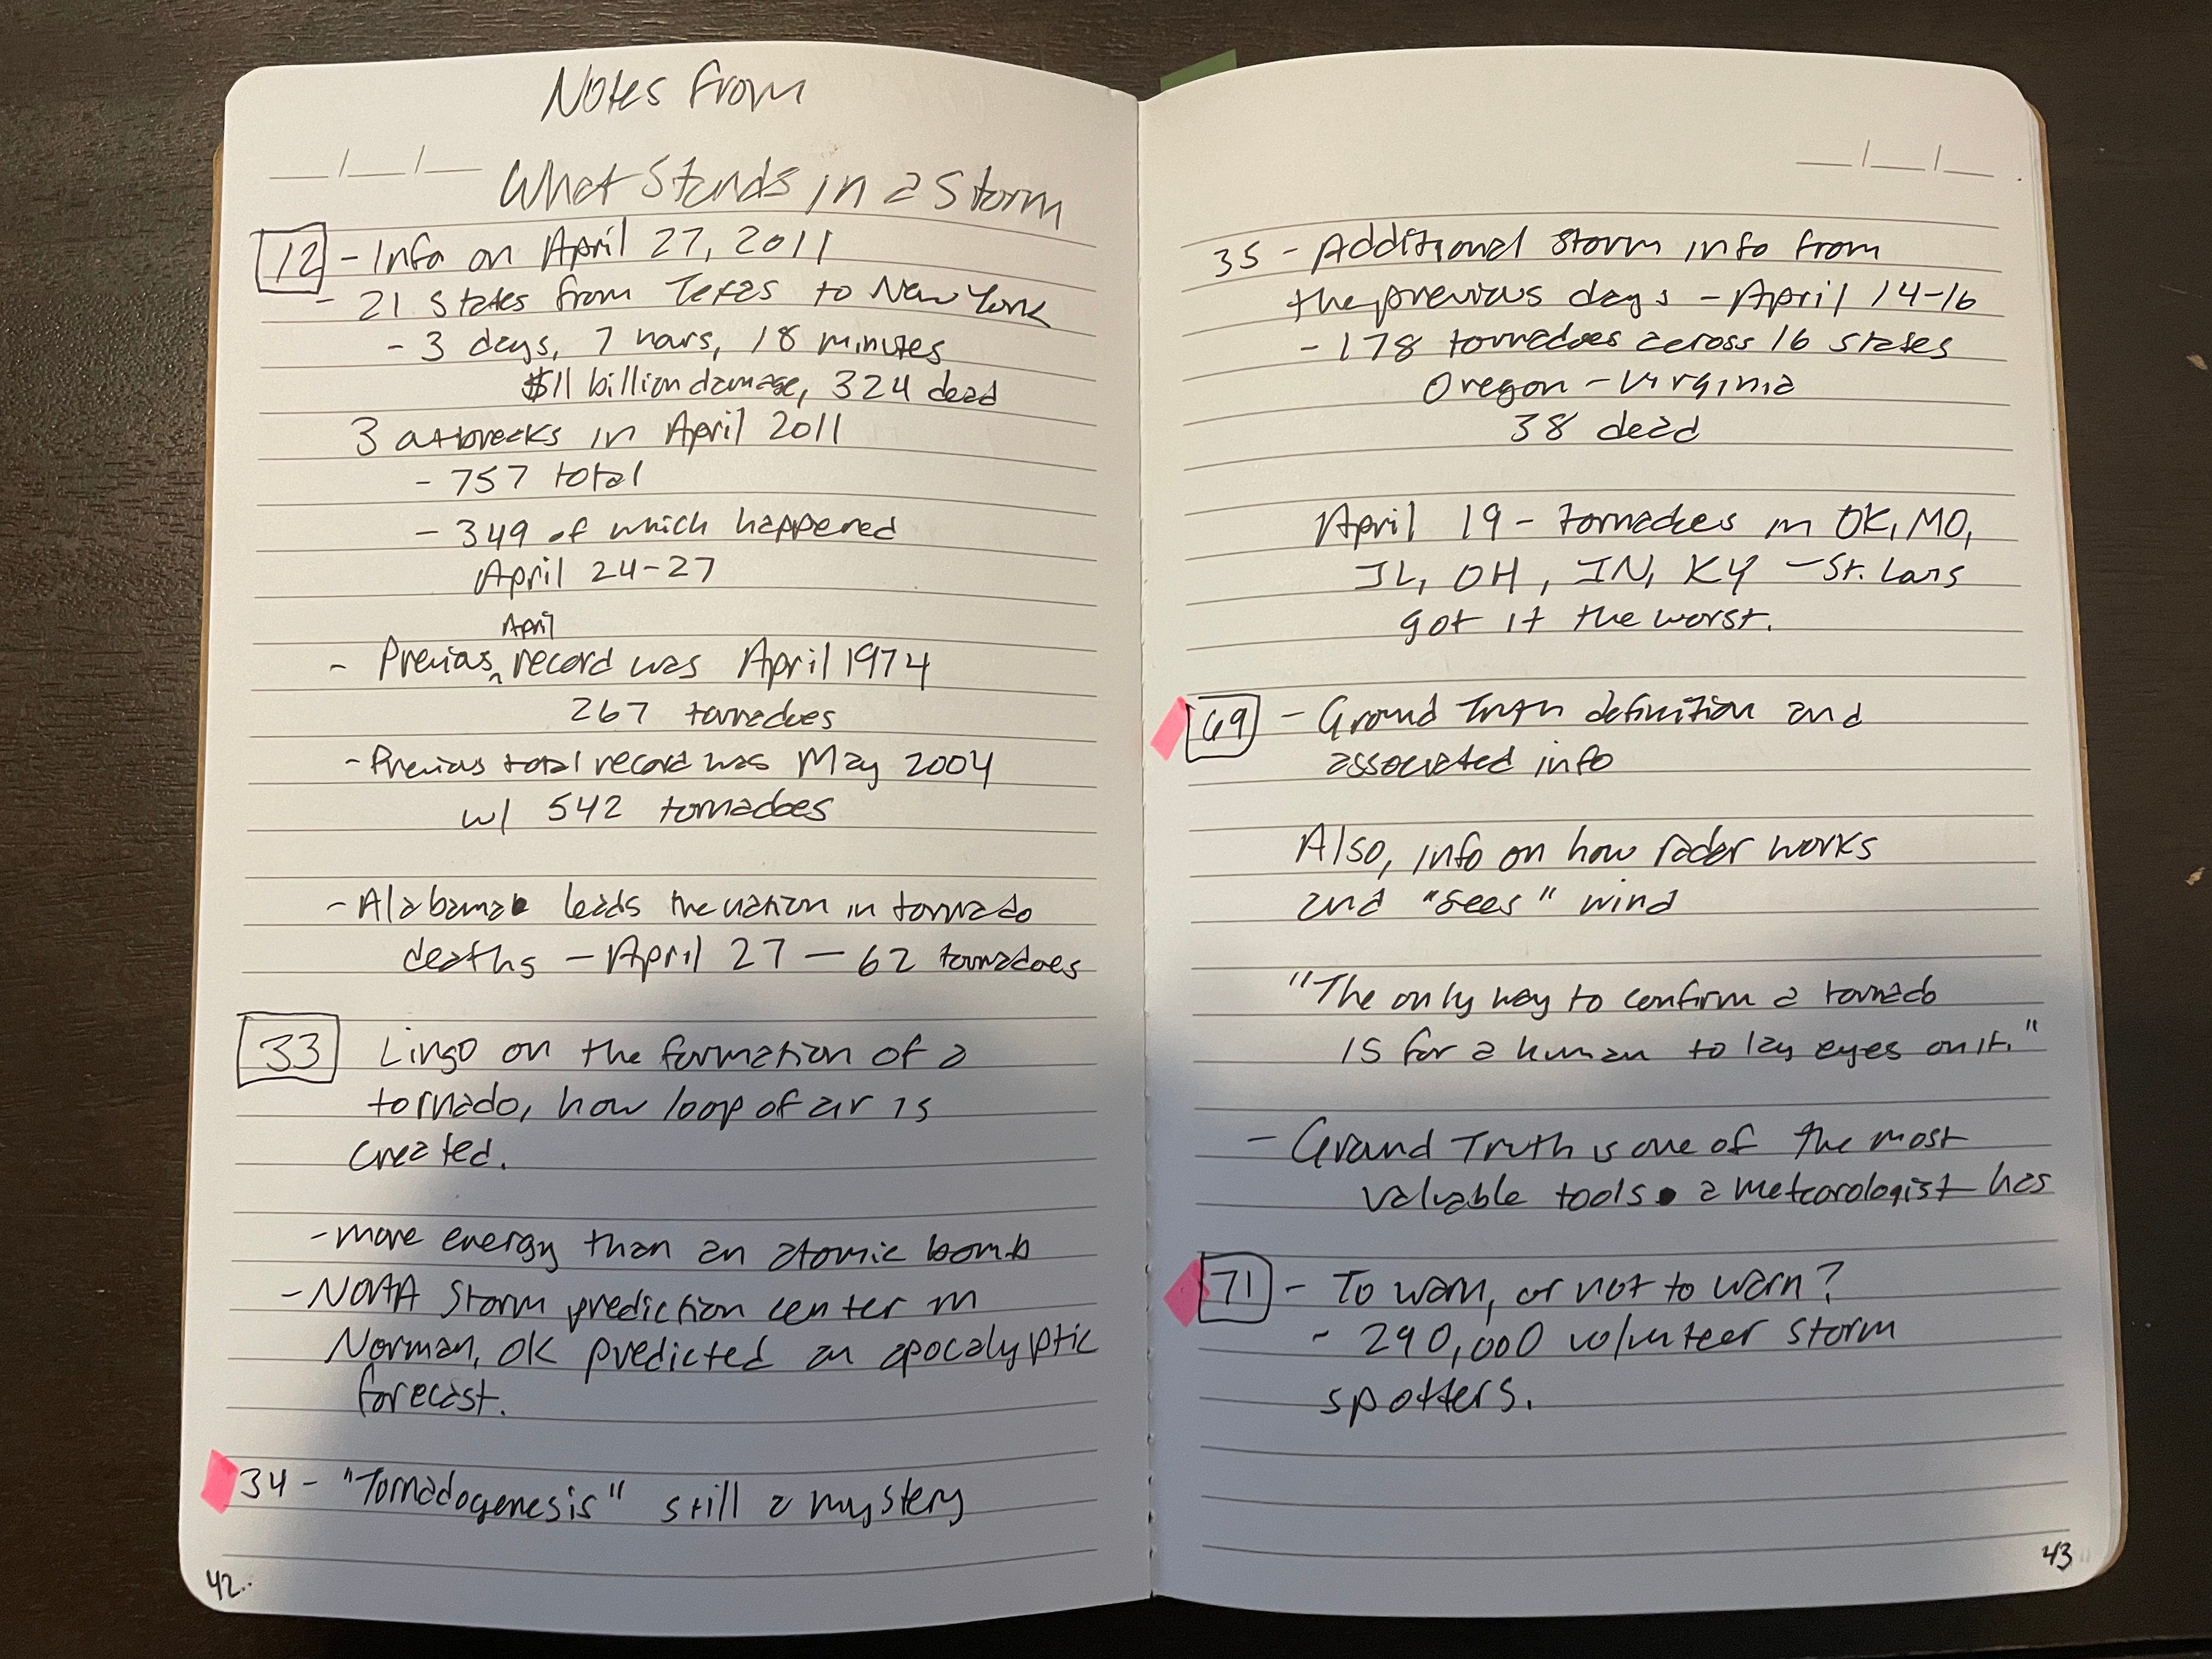 Notes from
__/__/__
What Stands in a Storm
12 - Info on April 27, 2011
- 21 states from Texas to New York
- 3 days, 7 hours, 18 minutes
$11 billion damage, 324 dead
3 outbreaks in April 2011
- 757 total
- 349 of which happened
April 24-27
April
- Previous ^ record was April 1974
267 tornadoes
- Previous total record was May 2004
w/ 542 tornadoes
- Alabama leads the nation in tornado
deaths - April 27 - 62 tornadoes
33 Lingo on the formation of a
tornado, how loop of air is
created.
- more energy than an atomic bomb
- NOAA Storm prediction center in
Norman, OK predicted an apocalyptic
forecast.
34 - "Tornadogenesis" still a mystery
42
__/__/__
35 - Additional storm info from
the previous days - April 14-16
- 178 tornadoes across 16 states
Oregon - Virginia
38 dead
April 19 - tornadoes in OK, MO,
IL, OH, IN, KY - St. Louis
got it the worst.
69 - Ground Truth definition and
associated info
Also, info on how radar works
and "sees" wind
"The only way to confirm a tornado
is for a human to lay eyes on it."
- Ground Truth is one of the most
valuable tools a meteorologist has
71 - To warn, or not to warn?
- 290,000 volunteer storm
spotters.
43